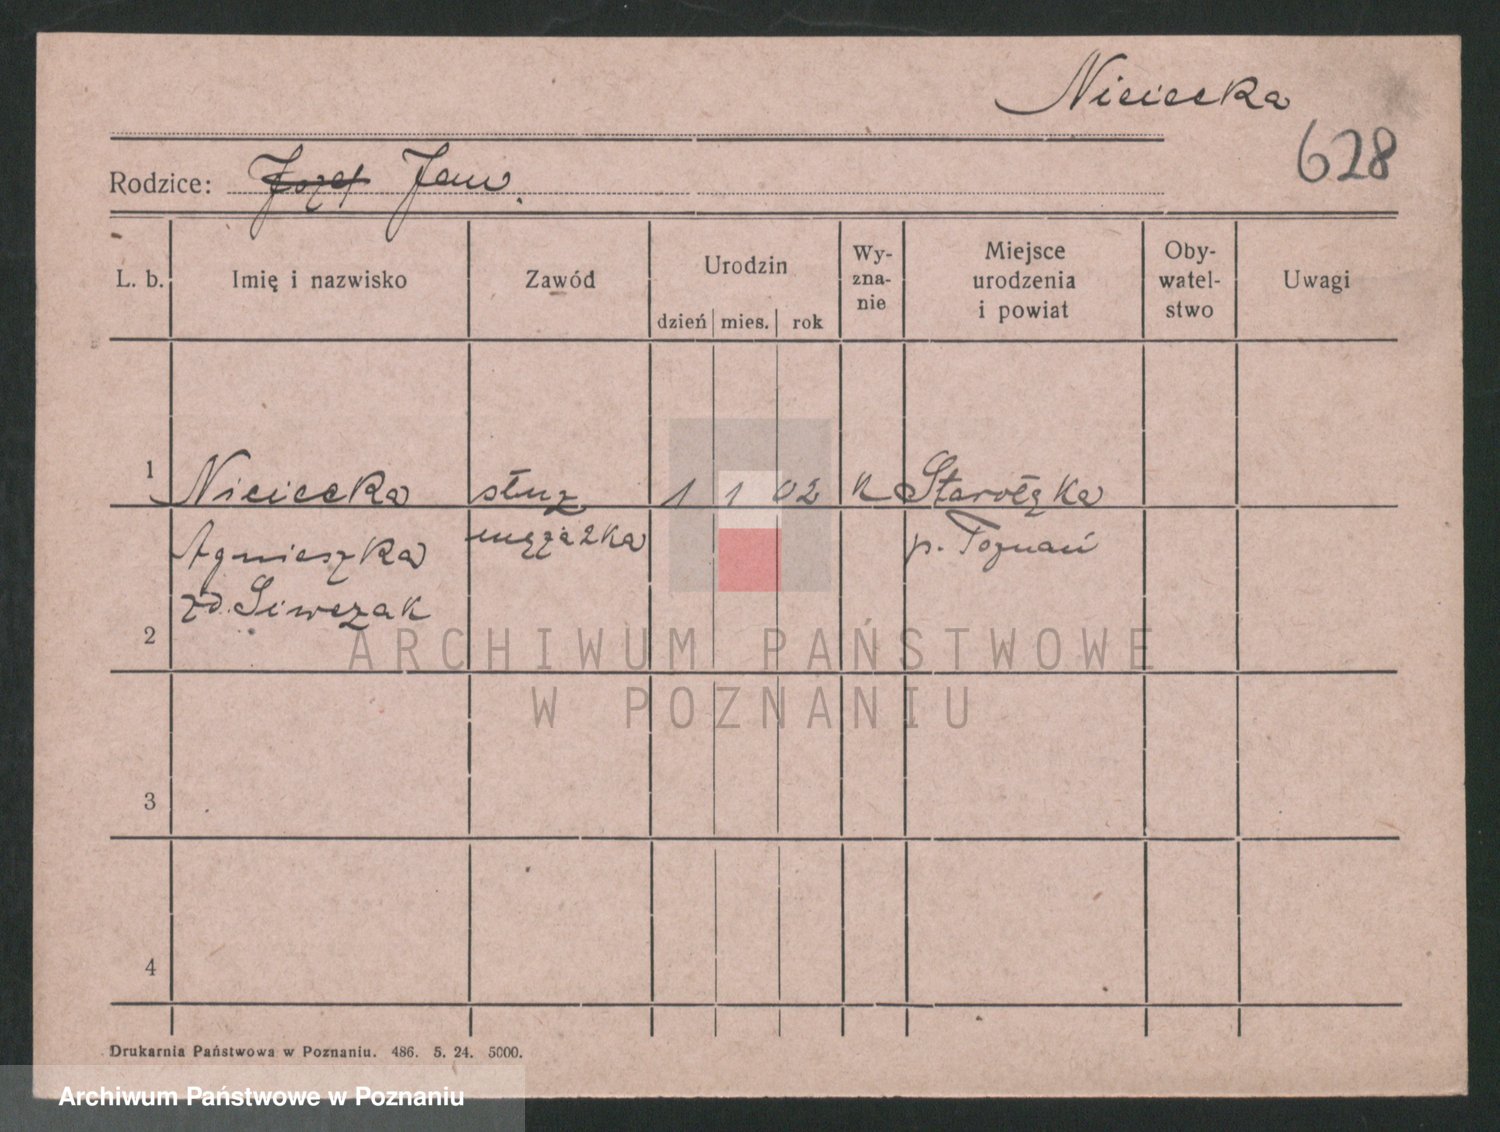 Niciecka
628
Rodzice: Józef Jan.
L. b. Imię i nazwisko Zawód Urodzin Wy- Miejsce Oby- Uwagi
zna- urodzenia watel-
nie i powiat stwo
dzień mies. rok
1 Niciecka służ 1 1 02 k Starołęka
Agnieszka mężatka p. Poznań
zd. Siwczak
2
ARCHIWUM PAŃSTWOWE
W POZNANIU
3
4
Drukarnia Państwowa w Poznaniu. 486. 5. 24. 5000.
Archiwum Państwowe w Poznaniu